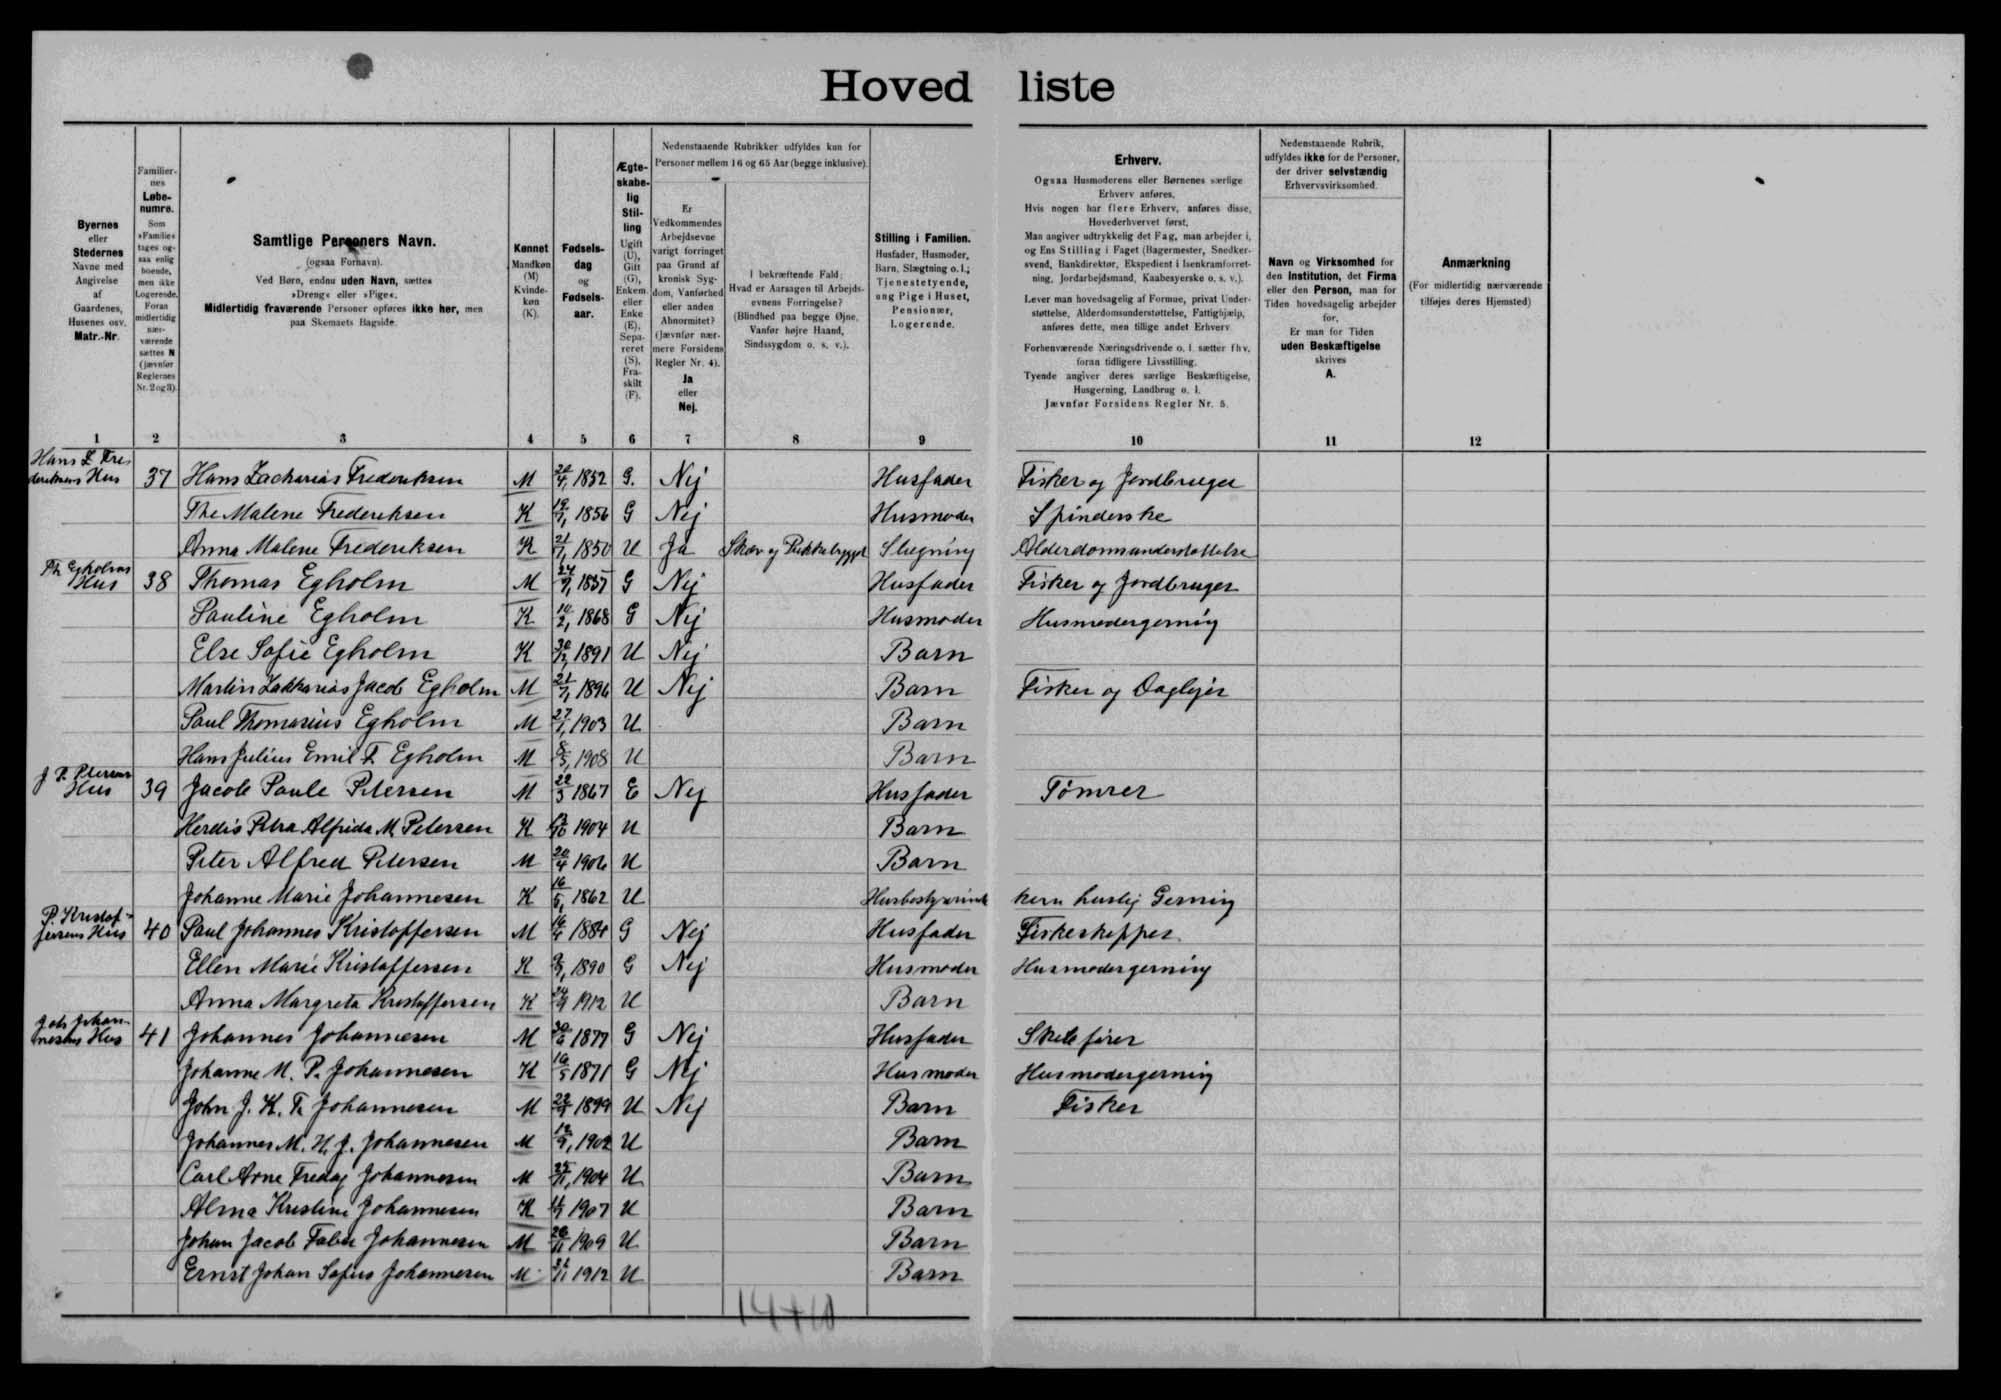 Hovedliste
Byernes
eller
Stedernes
Navne med
Angivelse
af
Gaardenes,
Husenes osv.
Matr.-Nr.
Familier-
nes
Løbe-
numre.
Som
»Familie«
tages og-
saa enlig
boende,
men ikke
Logerende.
Foran
midlertidig
nær-
værende
sættes N
(jævnfør
Reglernes
Nr. 2 og 3).
Samtlige Personers Navn.
(ogsaa Fornavn).
Ved Børn, endnu uden Navn, sættes
»Dreng« eller »Pige«.
Midlertidig fraværende Personer opføres ikke her, men
paa Skemaets Bagside.
Kønnet
Mandkøn
(M)
Kvinde-
køn
(K).
Fødsels-
dag
og
Fødsels-
aar.
Ægte-
skabe-
lig
Stil-
ling
Ugift
(U),
Gift
(G),
Enkem.
eller
Enke
(E),
Sepa-
reret
(S),
Fra-
skilt
(F).
Nedenstaaende Rubrikker udfyldes kun for
Personer mellem 16 og 65 Aar (begge inklusive).
Er
Vedkommendes
Arbejdsevne
varigt forringet
paa Grund af
kronisk Syg-
dom, Vanførhed
eller anden
Abnormitet?
(Jævnfør nær-
mere Forsidens
Regler Nr. 4).
Ja
eller
Nej.
I bekræftende Fald:
Hvad er Aarsagen til Arbejds-
evnens Forringelse?
(Blindhed paa begge Øjne,
Vanfør højre Haand,
Sindssygdom o. s. v.).
Stilling i Familien.
Husfader, Husmoder,
Barn, Slægtning o. l.;
Tjenestetyende,
ung Pige i Huset,
Pensionær,
Logerende.
Erhverv.
Ogsaa Husmoderens eller Børnenes særlige
Erhverv anføres.
Hvis nogen har flere Erhverv, anføres disse,
Hovederhvervet først.
Man angiver udtrykkelig det Fag, man arbejder i,
og Ens Stilling i Faget (Bagermester, Snedker-
svend, Bankdirektør, Ekspedient i Isenkramforret-
ning, Jordarbejdsmand, Kaabesyerske o. s. v.).
Lever man hovedsagelig af Formue, privat Under-
støttelse, Alderdomsunderstøttelse, Fattighjælp,
anføres dette, men tillige andet Erhverv
Forhenværende Næringsdrivende o. l. sætter fhv.
foran tidligere Livsstilling.
Tyende angiver deres særlige Beskæftigelse,
Husgerning, Landbrug o. l.
Jævnfør Forsidens Regler Nr. 5.
Nedenstaaende Rubrik,
udfyldes ikke for de Personer,
der driver selvstændig
Erhvervsvirksomhed.
Navn og Virksomhed for
den Institution, det Firma
eller den Person, man for
Tiden hovedsagelig arbejder
for.
Er man for Tiden
uden Beskæftigelse
skrives
A.
Anmærkning
(For midlertidig nærværende
tilføjes deres Hjemsted)
1 2 3 4 5 6 7 8 9 10 11 12
Hans Z Fre-
dereksens Hus 37 Hans Zacharias Frederiksen M 20/4, 1852 G. Nej Husfader Fisker og Jordbruger
The Malene Frederiksen K 19/7, 1856 G Nej Husmoder Spinderske
Anna Malene Frederiksen K 21/7, 1850 U Ja Skæv og Slægning Alderdomsunderstøttelse
Th Egholms
Hus 38 Thomas Egholm M 24/9, 1857 G Nej Husfader Fisker og Jordbruger
Pauline Egholm K 10/2, 1868 G Nej Husmoder Husmodergerning
Else Sofie Egholm K 1891 U Nej Barn
Martin Zakkarias Jacob Egholm M 21/7, 1896 U Nej Barn Fisker og Daglejer
Paul Thomasius Egholm M 27/1, 1903 U Barn
Hans Julius Emil F. Egholm M 8/5, 1908 U Barn
J P. Petersens
Hus 39 Jacob Paule Petersen M 22/3 1867 E Nej Husfader Tømrer
Herdis Petra Alfrida M Petersen K 1904 U Barn
Peter Alfred Petersen M 20/4 1906 U Barn
Johanne Marie Johannesen K 16/5, 1862 U Husbestyrerinde huslig Gerning
P. Kristof-
fersens Hus 40 Paul Johannes Kristoffersen M 16/4 1884 G Nej Husfader Fiskeskipper
Ellen Marie Kristoffersen K 1890 G Nej Husmoder Husmodergerning
Anna Margreta Kristoffersen K 24/9 1912 U Barn
Joh Johan-
nesens Hus 41 Johannes Johannesen M 1877 G Nej Husfader
Johanne M. P. Johannesen K 19/5 1871 G Nej Husmoder Husmodergerning
John J. K. F. Johannesen M 1899 U Nej Barn Fisker
Johannes M. H. J. Johannesen M 12/9, 1902 U Barn
Carl Arne Fredag Johannesen M 25/11, 1904 U Barn
Alma Kristine Johannesen K 1907 U Barn
Johan Jacob Faber Johannesen M 26/11 1909 U Barn
Ernst Johan Sofus Johannesen M 22/11 1912 U Barn
14+10